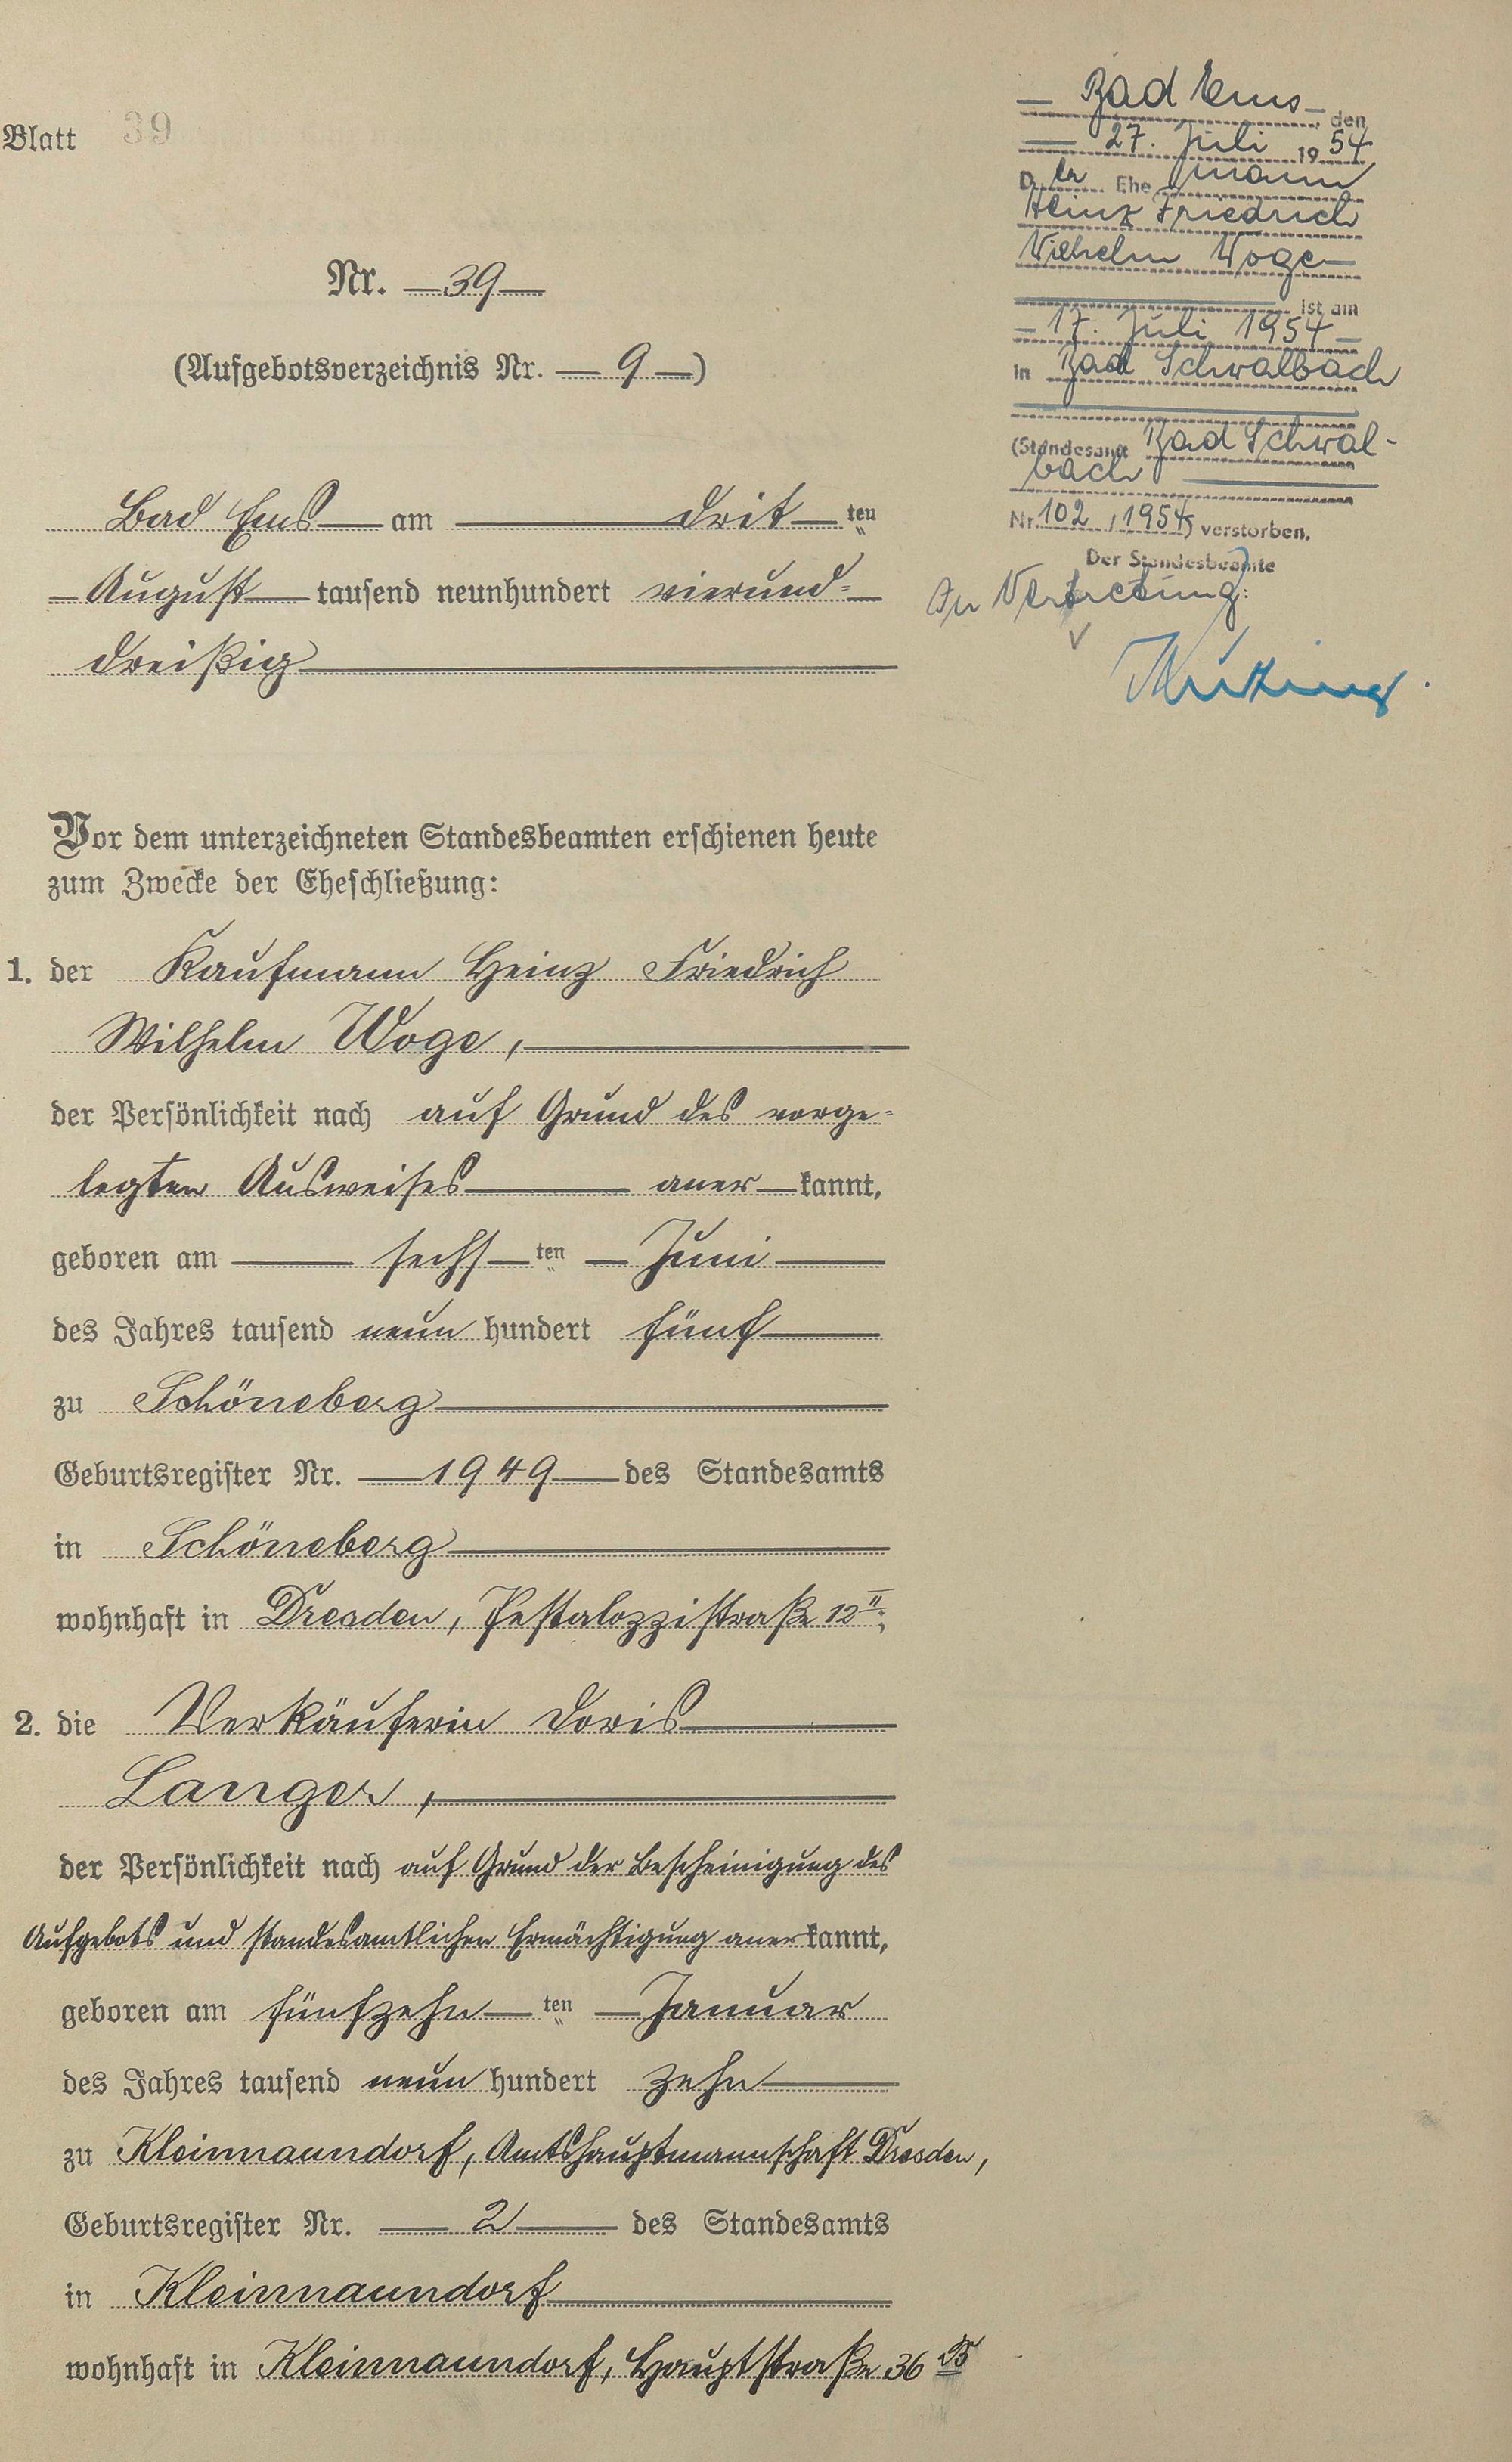 Blatt 39
Nr. 39
(Aufgebotsverzeichnis Nr. 9)
Bad Ems am drit ten
August tausend neunhundert vierund-
dreißig
Vor dem unterzeichneten Standesbeamten erschienen heute
zum Zwecke der Eheschließung:
1. der Kaufmann Heinz Friedrich
Wilhelm Woge,
der Persönlichkeit nach auf Grund des vorge-
legten Ausweises aner kannt,
geboren am sechs ten Juni
des Jahres tausend neun hundert fünf
zu Schöneberg
Geburtsregister Nr. 1949 des Standesamts
in Schöneberg
wohnhaft in Dresden, Pestalozzistraße 12 II;
2. die Verkäuferin Doris
Langer,
der Persönlichkeit nach auf Grund der Bescheinigung des
Aufgebots und standesamtlichen Ermächtigung aner kannt,
geboren am fünfzehn ten Januar
des Jahres tausend neun hundert zehn
zu Kleinnaundorf, Amtshauptmannschaft Dresden,
Geburtsregister Nr. 2 des Standesamts
in Kleinnaundorf
wohnhaft in Kleinnaundorf, Hauptstraße 36 B
Bad Ems, den
27. Juli 1954
Der Ehemann
Heinz Friedrich
Wilhelm Woge
ist am
17. Juli 1954
in Bad Schwalbach
(Standesamt Bad Schwal-
bach
Nr. 102/1954) verstorben.
Der Standesbeamte
In Vertretung: